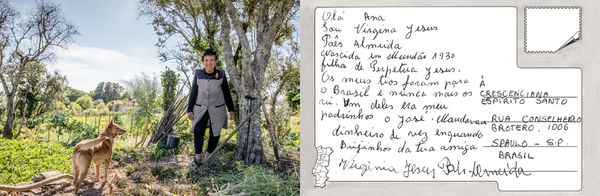 Olá Ana
Sou Virginia Jesus
Pais Almeida
nascida em Mundão 1930
filha de Perpetua Jesus.
Os meus tios foram para
o Brasil e nunca mais os
vi. Um deles era meu
padrinhos o José. Mandavam
dinheiro de vez enquando
Beijinhos da tua amiga
Virginia Jesus Pais Almeida
À
CRESCENCIANA
ESPIRITO SANTO
RUA CONSELHEIRO
BROTERO, 1006
SPAULO - S.P.
BRASIL